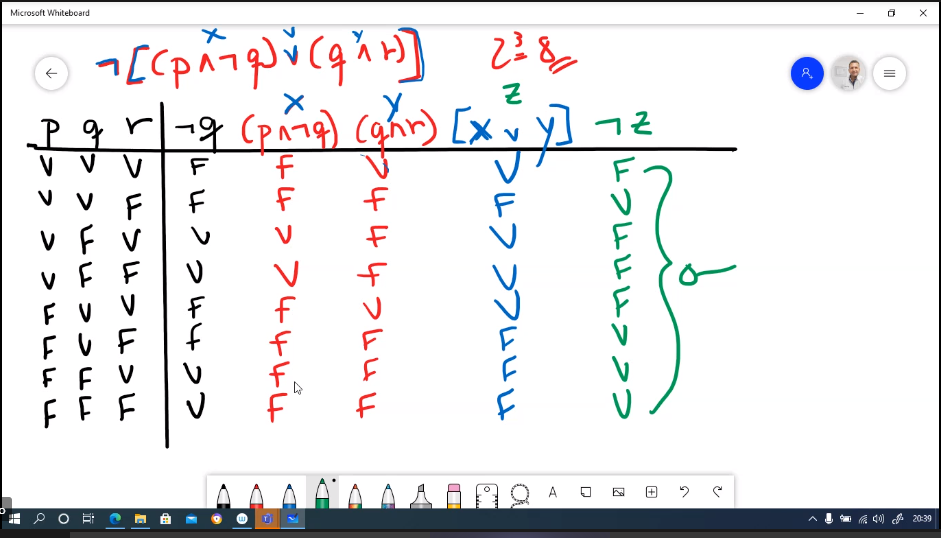 Microsoft Whiteboard
X V Y
¬[(p∧¬q) ∨ (q∧r)] 2³ = 8
Z
X Y
p q r ¬q (p∧¬q) (q∧r) [X ∨ Y] ¬Z
V V V F F V V F
V V F F F F F V
V F V V V F V F
V F F V V F V F
F V V F F V V F
F V F F F F F V
F F V V F F F V
F F F V F F F V
A
20:39